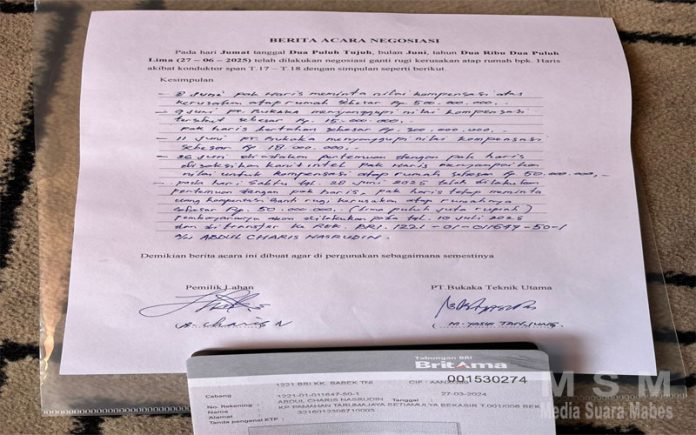 BERITA ACARA NEGOSIASI
Pada hari Jumat tanggal Dua Puluh Tujuh, bulan Juni, tahun Dua Ribu Dua Puluh
Lima (27 – 06 – 2025) telah dilakukan negosiasi ganti rugi kerusakan atap rumah bpk. Haris
akibat konduktor span T.17 – T.18 dengan simpulan seperti berikut.
Kesimpulan
- 8 Juni pak Haris meminta nilai kompensasi atas
kerusakan atap rumah sebesar Rp. 500.000.000,-
- 9 Juni PT. Bukaka menyanggupi nilai kompensasi
tersebut sebesar Rp. 15.000.000,-
pak haris bertahan sebesar Rp. 300.000.000,-
- 11 Juni PT. Bukaka menyanggupi nilai kompensasi
sebesar Rp 18.000.000,-
- 26 Juni diadakan pertemuan dengan pak haris
disaksikan kanit intel pak Haris menyampaikan
nilai untuk kompensasi atap rumah sebesar Rp 50.000.000,-
- pada hari Sabtu tgl. 28 Juni 2025 telah dilakukan
pertemuan dengan pak haris, pak haris tetap meminta
uang kompensasi ganti rugi kerusakan atap rumahnya
sebesar Rp. 50.000.000 (lima puluh juta rupiah)
pembayarannya akan dilakukan pada tgl. 10 Juli 2025
dan di transfer ke Rek. BRI. 1221-01-011647-50-1
a/n ABDUL CHARIS NASRUDIN.
Demikian berita acara ini dibuat agar di pergunakan sebagaimana semestinya
Pemilik Lahan PT.Bukaka Teknik Utama
A. CHARIS N ( M. YASIR TANJUNG )
Tabungan BRI
BritAma
001530274
1221 BRI KK. BABEK TNI CIF :
Cabang 1221-01-011647-50-1 27-03-2024
No. Rekening ABDUL CHARIS NASRUDIN
Nama KP PAMAHAN TARUMAJAYA SETIAMULYA BEKASI T.001/006 BEK
Alamat
Tanda pengenal KTP
M S M
Media Suara Mabes